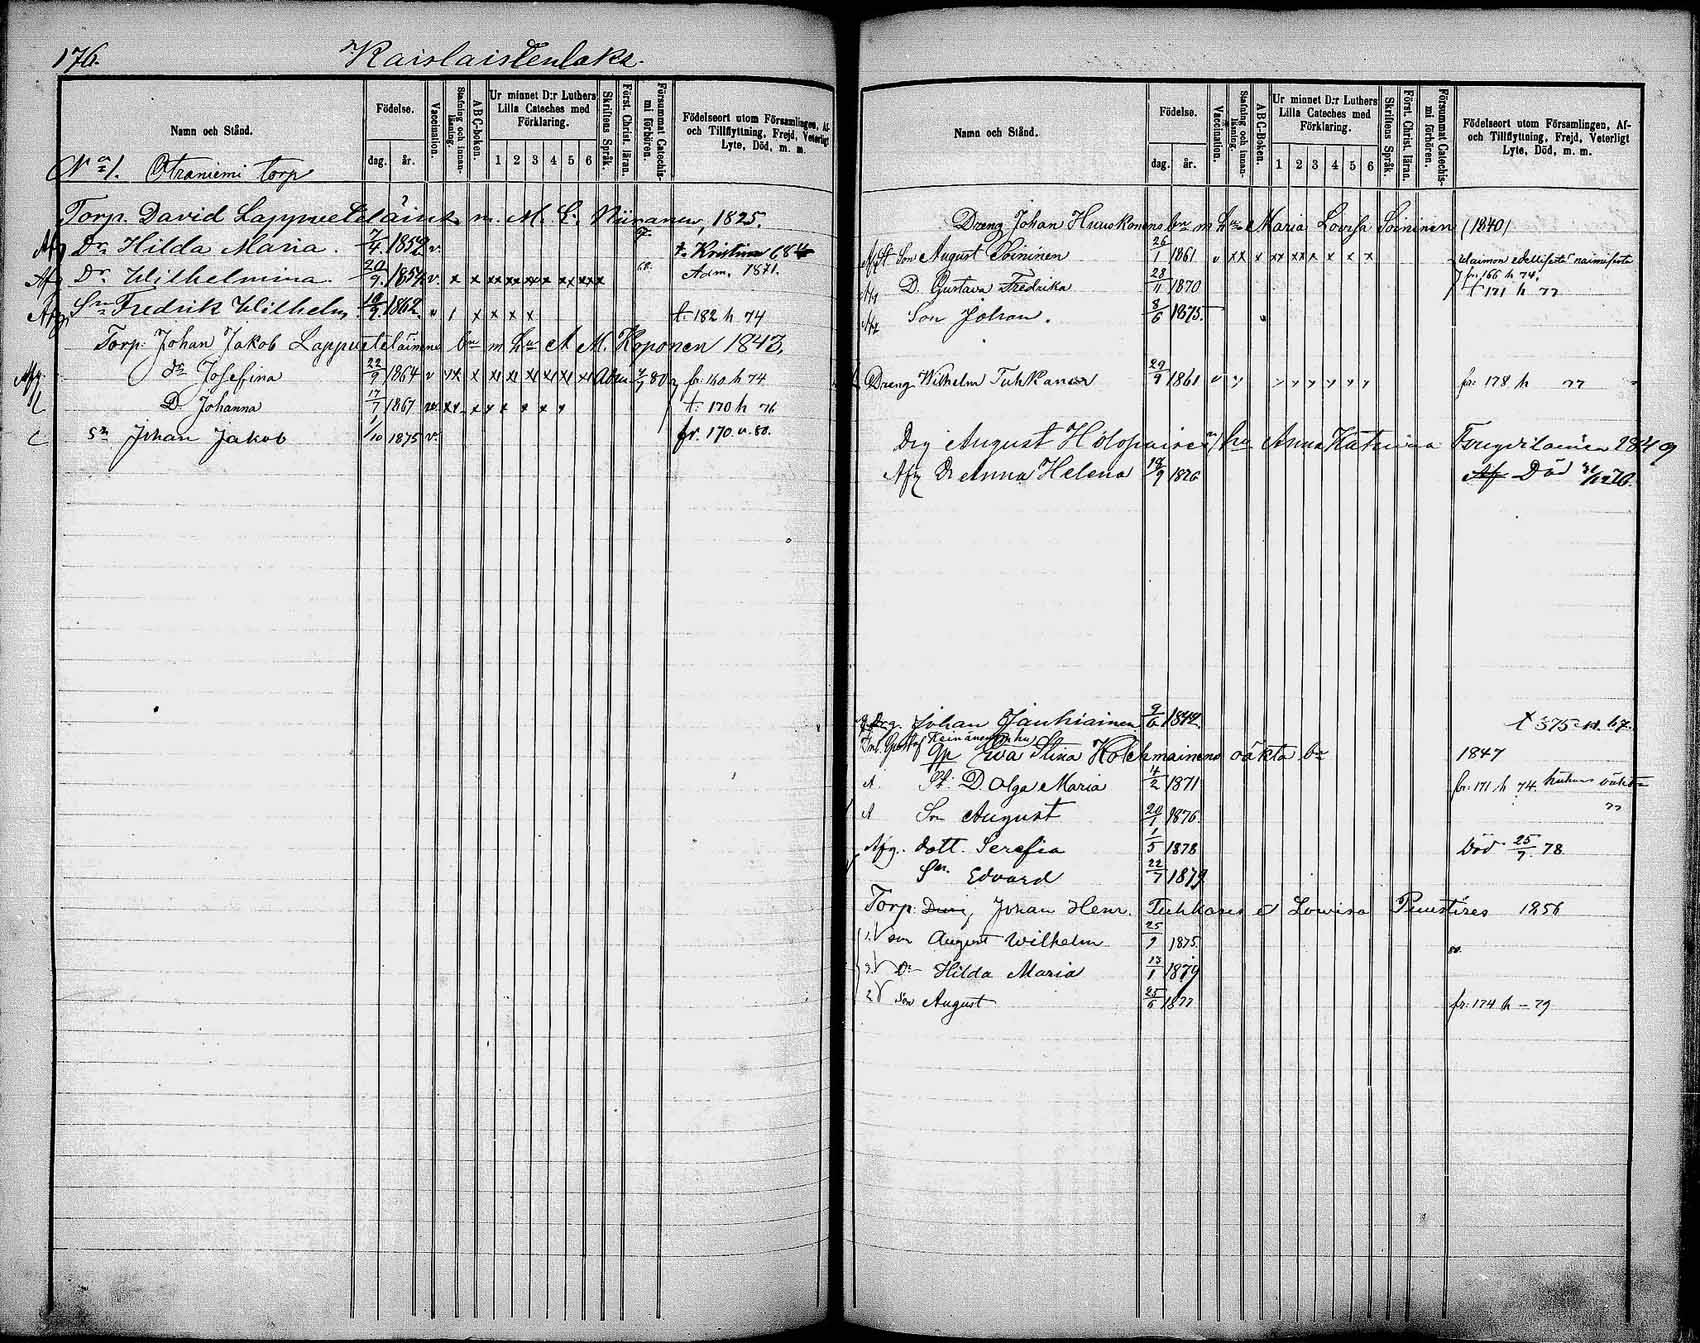 176. Kaislaistenlaks.
Namn och Stånd. Födelse. dag. år. Vaccination. Stafning och innan-läsning. ABC-boken. Ur minnet D:r Luthers Lilla Cateches med Förklaring. 1 2 3 4 5 6 Skriftens Språk. Först. Christ. läran. Försummat Catechis-mi förhören. Födelseort utom Församlingen, Af- och Tillflyttning, Frejd, Veterligt Lyte, Död, m. m.
No 1. Otraniemi torp
Torp. David Lappveteläinen m. M. L. Niiranen, 1825.
Afg Dr Hilda Maria. 7/4 1852 v. t. Kristina 684
Afg Dr Wilhelmina 20/9 1857 v. x x xx xx x x xx xx Adm. 1871.
Afg Sn Fredrik Wilhelm 1862 v 1 x x x x t. 182 h 74
Torp. Johan Jakob Lappveteläinens bn m hu A M. Koponen 1843.
Afg dr Josefina 22/9 1864 v fr. 160 h 74
D. Johanna 17/7 1867 t. 170 h 76
Sn Johan Jakob 1/10 1875 v. fr. 170. v. 80.
Namn och Stånd. Födelse. dag. år. Vaccination. Stafning och innan-läsning. ABC-boken. Ur minnet D:r Luthers Lilla Cateches med Förklaring. 1 2 3 4 5 6 Skriftens Språk. Först. Christ. läran. Försummat Catechis-mi förhören. Födelseort utom Församlingen, Af- och Tillflyttning, Frejd, Veterligt Lyte, Död, m. m.
Dreng Johan Huuskonens bn m hu Maria Lovisa Soininen (1840)
Afg St. Son August Soininen 26/1 1861 v xx x x xx xx x x x x
fr. 166 h 74.
Afg D. Gustava Fredrika 28/11 1870 t 171 h 77
Afg Son Johan. 8/6 1875.
Dreng Wilhelm Tuhkanen 29/9 1861 v fr. 178 h 77
Drg August Holopainen hu Anna Katrina 1849
Afg Dr Anna Helena 19/9 1876 Död 76.
Drg. Johan Jauhiainen 9/6 1844 t 375 67.
Inh. Gustaf Keinänens hu
Qp Eva Stina Kolehmainens oäkta bn 1847
A St. D. Olga Maria 4/2 1871 fr. 171 h 74.
A Son August 20/1 1876 77
Afg. dott. Serefia 1/5 1878 Död 25/7. 78
Sn. Edvard 22/7 1879
Torp. Johan Henr. Tuhkanen e Lowisa 1856
1. son August Wilhelm 25/9 1875. 80.
3. Dr Hilda Maria 13/1 1879
2. Son August 25/6 1877 fr. 174 h - 79